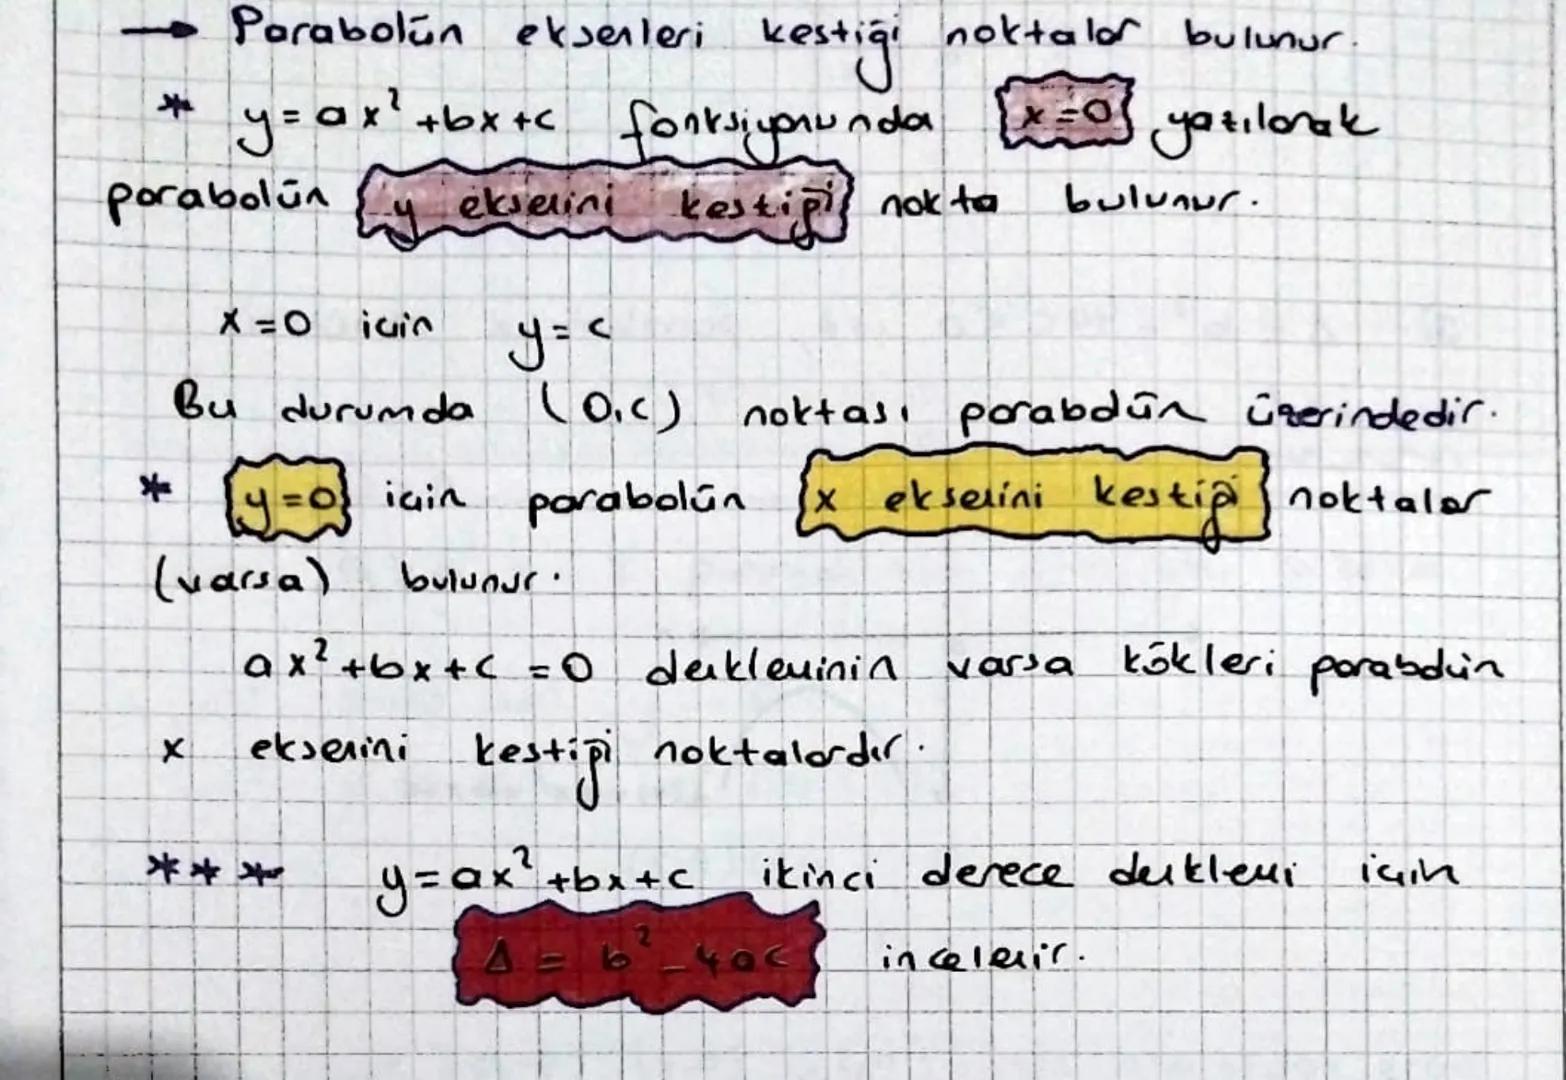 → Parabolün eksenleri kestiği noktalar bulunur.
* y=ax²+bx+c fonksiyonunda x=0 yazılarak
parabolün y eksenini kestiği nokta bulunur.
x=0 için y=c
Bu durumda (0,c) noktası parabolün üzerindedir.
* y=0 için parabolün x eksenini kestiği noktalar
(varsa) bulunur.
ax²+bx+c=0 denkleminin varsa kökleri parabolün
x eksenini kestiği noktalardır.
*** y=ax²+bx+c ikinci derece denklemi için
Δ = b²-4ac incelenir.